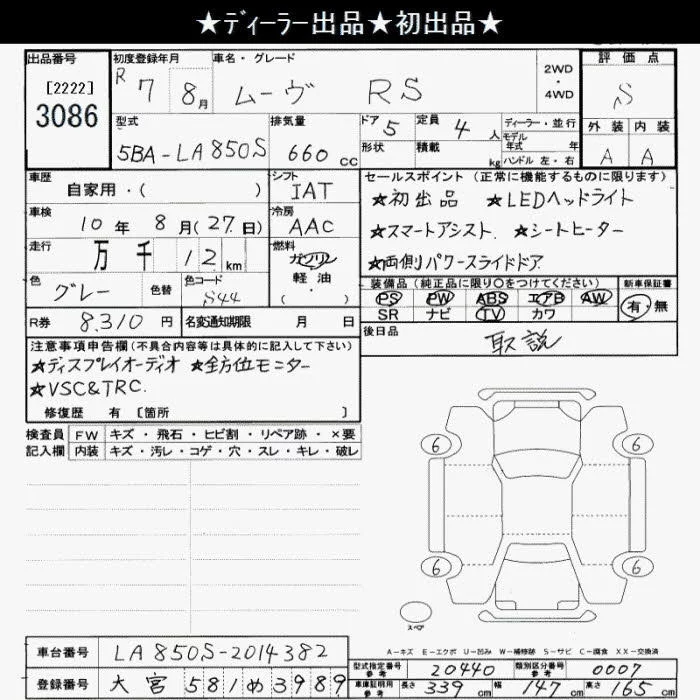 ★ディーラー出品★初出品★
出品番号
[2222]
3086
初度登録年月
R 7 8月
車名・グレード
ムーヴ RS
2WD
・
4WD
評価点
S
型式
5BA-LA850S
排気量
660 cc
ドア 5
形状
定員 4 人
積載 kg
ディーラー・並行
モデル
年式 年
ハンドル 左・右
外装 内装
A A
車歴
自家用・( )
シフト
IAT
セールスポイント(正常に機能するものに限ります)
★初出品 ★LEDヘッドライト
★スマートアシスト ★シートヒーター
★両側パワースライドドア
車検
10年 8月(27日)
冷房
AAC
走行
万 千 12 km
燃料
ガソリン
軽油
( )
色
グレー
色替
色コード
S44
装備品(純正品に限り○をつけてください)
PS PW ABS エアB AW
SR ナビ TV カワ
新車保証書
有・無
R券 8,310 円
名変通知期限 月 日
後日品
取説
注意事項申告欄(不具合内容等は具体的に記入して下さい)
★ディスプレイオーディオ ★全方位モニター
★VSC&TRC.
修復歴 有 〔箇所 〕
検査員
記入欄
FW キズ・飛石・ヒビ割・リペア跡・×要
内装 キズ・汚レ・コゲ・穴・スレ・キレ・破レ
6 6
6 6
スペア
A-キズ E-エクボ U-凹み W-補修跡 S-サビ C-腐食 XX-交換済
車台番号 LA850S-2014382
登録番号 大宮 581 め 3989
型式指定番号
参考
20440
類別区分番号
参考
0007
車庫証明用
参考
長さ 339 cm 幅 147 cm 高さ 165 cm